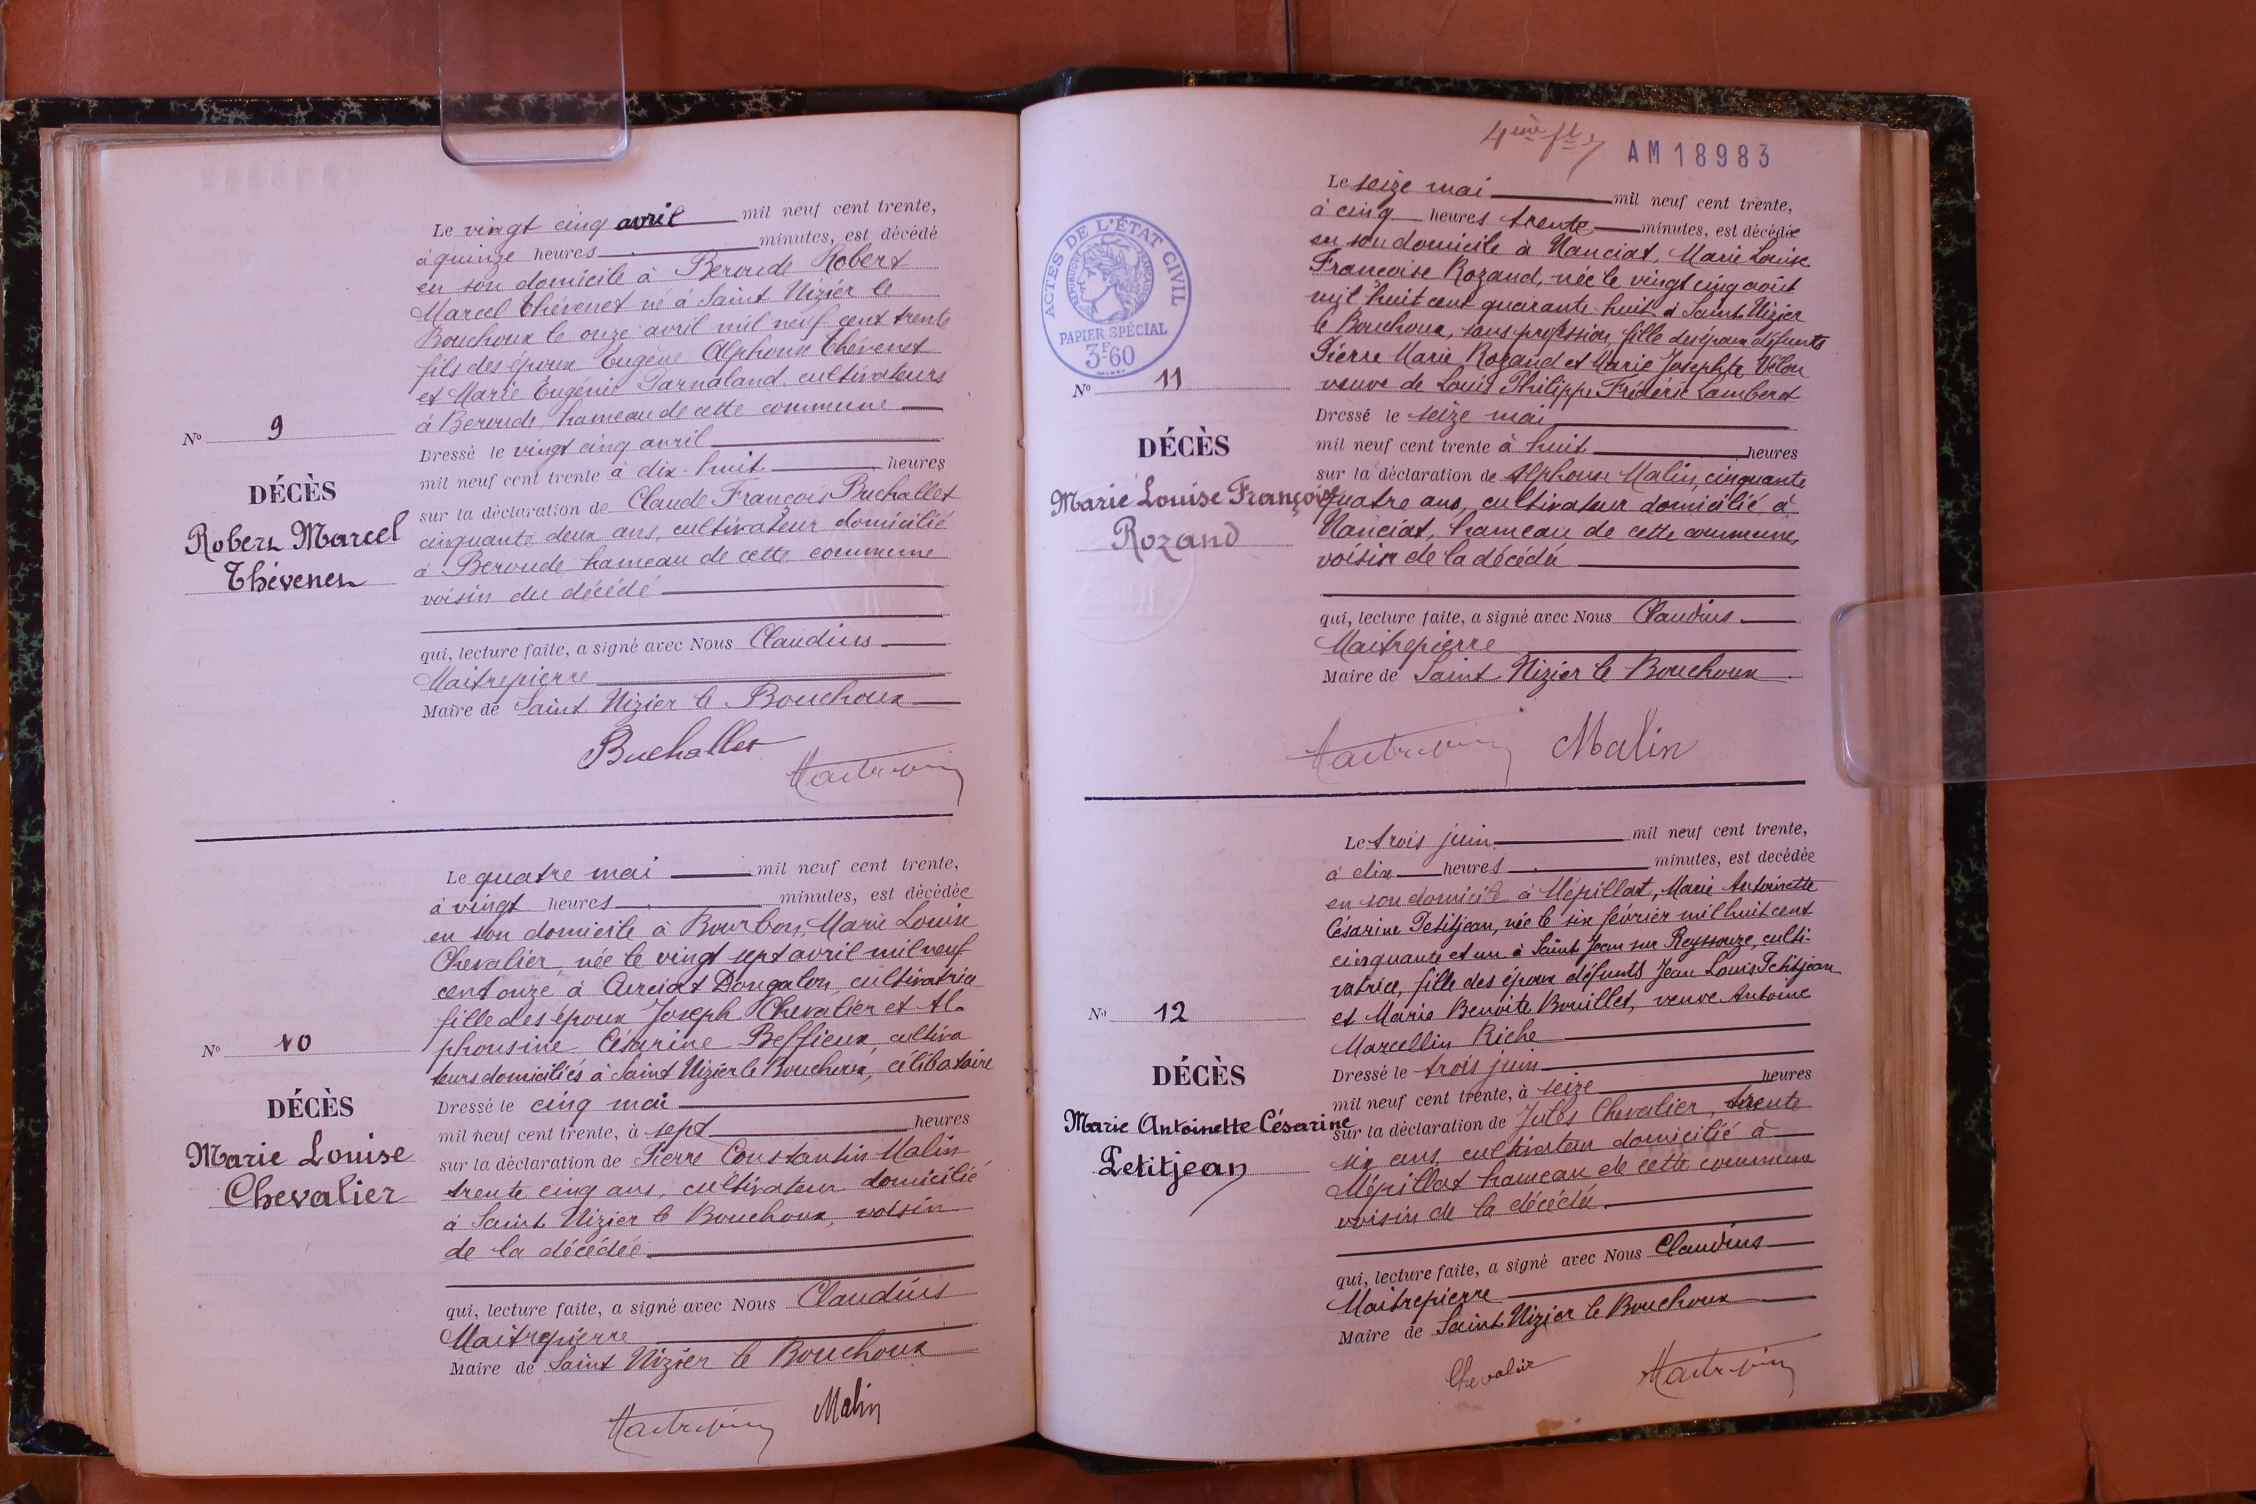 Le vingt cinq avril mil neuf cent trente,
à quinze heures minutes, est décédé
en son domicile à Beroude Robert
Marcel Thévenet né à Saint Nizier le
Bouchoux le onze avril mil neuf cent trente
fils des époux Eugène Alphonse Thévenet
et Marie Eugénie Parnaland, cultivateurs
à Beroude hameau de cette commune
Dressé le vingt cinq avril
mil neuf cent trente à dix-huit heures
sur la déclaration de Claude François Buchallet
cinquante deux ans, cultivateur domicilié
à Beroude hameau de cette commune
voisin du décédé
qui, lecture faite, a signé avec Nous Claudius
Maitrepierre
Maire de Saint Nizier le Bouchoux
Buchallet
Maitrepierre
N° 9
DÉCÈS
Robert Marcel
Thévenet
Le quatre mai mil neuf cent trente,
à vingt heures minutes, est décédée
en son domicile à Bourbon, Marie Louise
Chevalier, née le vingt sept avril mil neuf
cent onze à Curciat Dongalon, cultivatrice
fille des époux Joseph Chevalier et Al-
phonsine Césarine Beffieux, cultiva
teurs domiciliés à Saint Nizier le Bouchoux, célibataire
Dressé le cinq mai
mil neuf cent trente, à sept heures
sur la déclaration de Pierre Constantin Malin
trente cinq ans, cultivateur domicilié
à Saint Nizier le Bouchoux, voisin
de la décédée
qui, lecture faite, a signé avec Nous Claudius
Maitrepierre
Maire de Saint Nizier le Bouchoux
Maitrepierre Malin
N° 10
DÉCÈS
Marie Louise
Chevalier
4ème flt
AM18983
ACTES DE L'ÉTAT CIVIL
RÉPUBLIQUE FRANÇAISE
PAPIER SPÉCIAL
3F60
Le seize mai mil neuf cent trente,
à cinq heures trente minutes, est décédée
en son domicile à Nanciat, Marie Louise
Francoise Rozand, née le vingt cinq août
mil huit cent quarante huit à Saint Nizier
le Bouchoux, sans profession, fille des époux défunts
Pierre Marie Rozand et Marie Josephte Vélon
veuve de Louis Philippe Frédéric Lamberet
Dressé le seize mai
mil neuf cent trente à huit heures
sur la déclaration de Alphonse Malin, cinquante
quatre ans, cultivateur domicilié à
Nanciat, hameau de cette commune,
voisin de la décédée
qui, lecture faite, a signé avec Nous Claudius
Maitrepierre
Maire de Saint Nizier le Bouchoux
Maitrepierre Malin
N° 11
DÉCÈS
Marie Louise Françoise
Rozand
Le trois juin mil neuf cent trente,
à dix heures minutes, est decédée
en son domicile à Mépillat, Marie Antoinette
Césarine Petitjean, née le six février mil huit cent
cinquante et un à Saint Jean sur Reyssouze, culti-
vatrice, fille des époux défunts Jean Louis Petitjean
et Marie Benoite Bouillet, veuve Antoine
Marcellin Riche
Dressé le trois juin
mil neuf cent trente, à seize heures
sur la déclaration de Jules Chevalier, trente
six ans, cultivateur domicilié à
Mépillat hameau de cette commune
voisin de la décédée
qui, lecture faite, a signé avec Nous Claudius
Maitrepierre
Maire de Saint Nizier le Bouchoux
Chevalier Maitrepierre
N° 12
DÉCÈS
Marie Antoinette Césarine
Petitjean